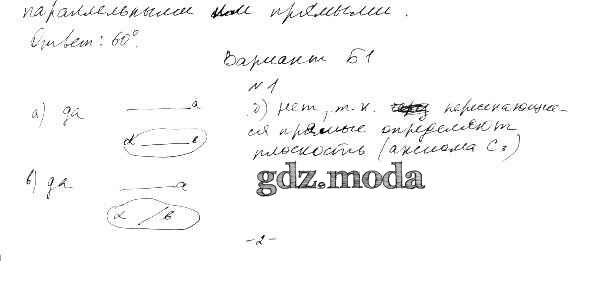 параллельными прямыми.
Ответ: 60°.
Вариант Б1
N1
а) да
a
α b
б) нет, т.к. пересекающие-
ся прямые определяют
плоскость (аксиома С3)
в) да
a
α b
gdz.moda
-2-